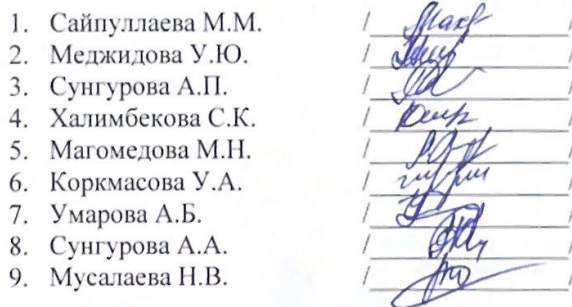 1. Сайпуллаева М.М. / /
2. Меджидова У.Ю. / /
3. Сунгурова А.П. / /
4. Халимбекова С.К. / /
5. Магомедова М.Н. / /
6. Коркмасова У.А. / /
7. Умарова А.Б. / /
8. Сунгурова А.А. / /
9. Мусалаева Н.В. / /